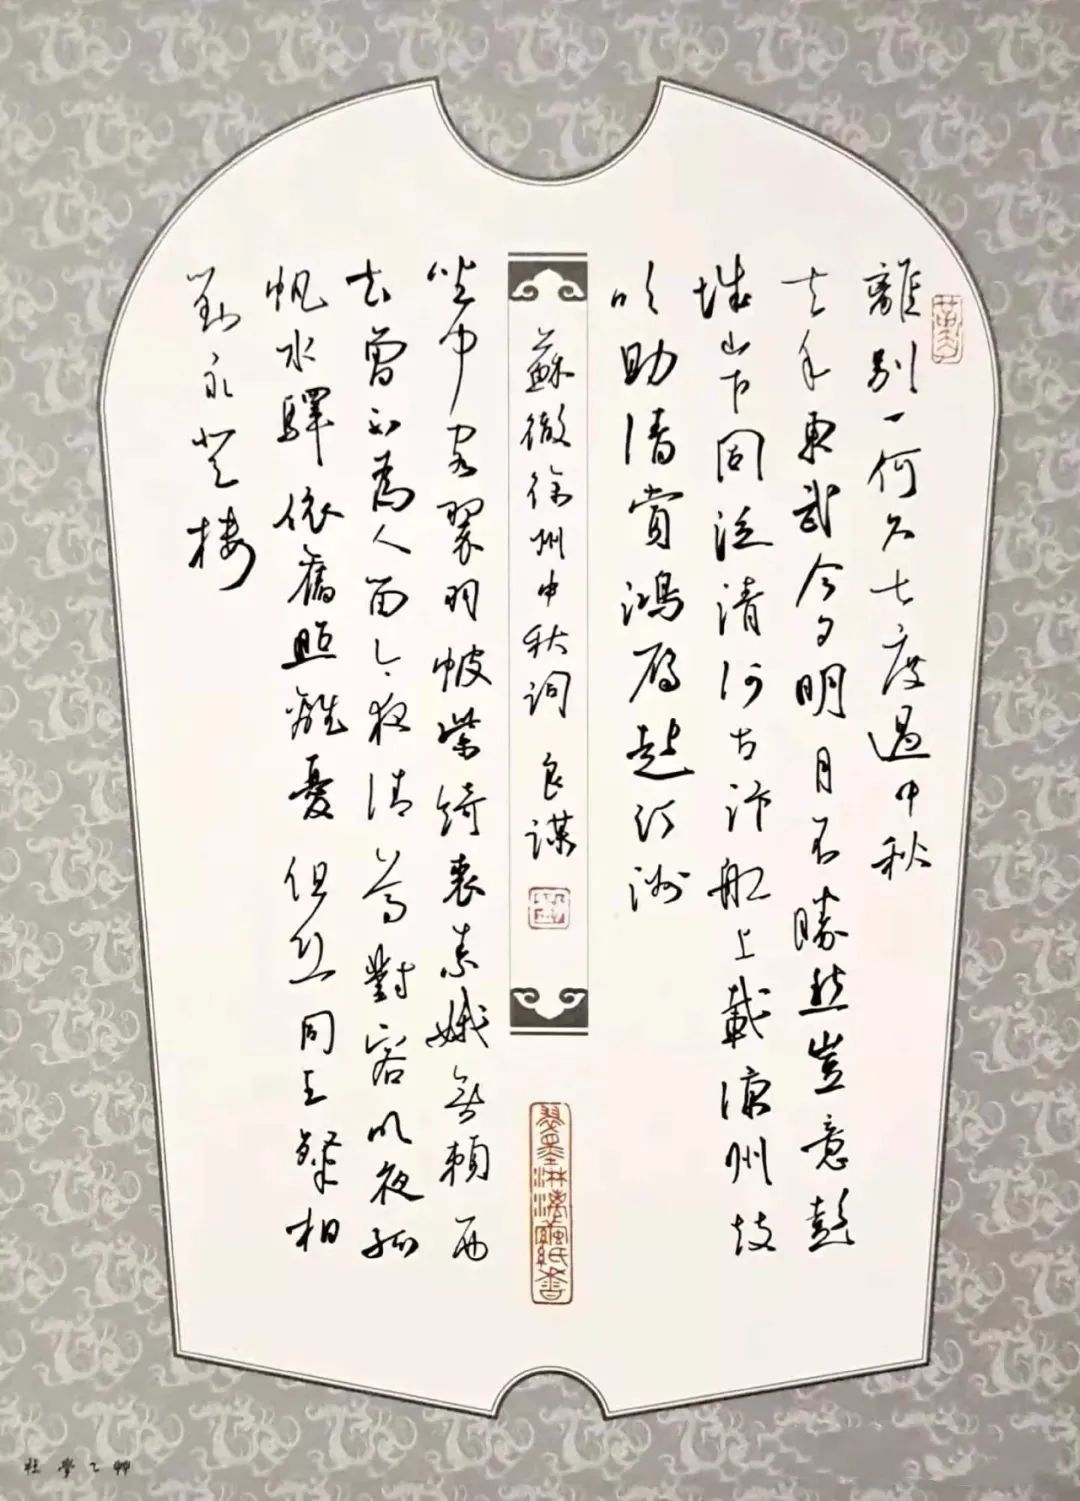 離別一何久七度過中秋
去年東武今夕明月不勝愁豈意彭
城山下同泛清河古汴船上載涼州鼓
吹助清賞鴻雁起汀洲
蘇徹徐州中秋詞 良謀
翠墨淋漓繭紙香
坐中客翠羽帔紫綺裘素娥無賴西
去曾不為人留今夜清尊對客明夜孤
帆水驛依舊照離憂但恐同王粲相
對永登樓